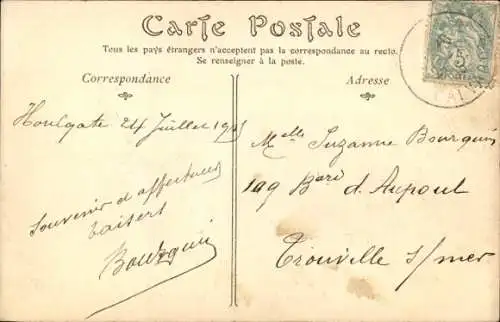 Carte Postale
Tous les pays étrangers n'acceptent pas la correspondance au recto.
Se renseigner à la poste.
Correspondance
Adresse
Houlgate 24 Juillet
Souvenir et affectueux
baisers
Bourquin
Melle Suzanne Bourquin
109 Bard d.
Trouville s/mer
5